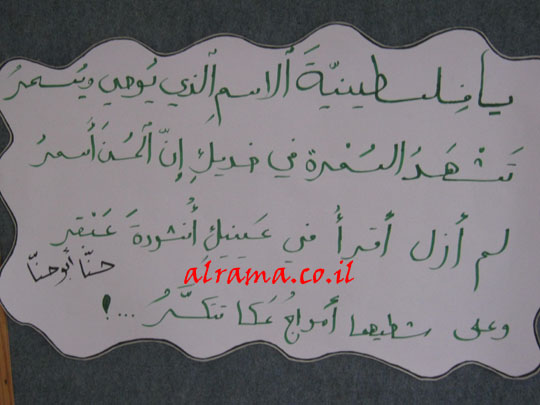 يا فلسطينيّةَ الاسم الذي يُوحي ويُسحرُ
تَشْهَدُ السُمْرة في خديكِ إنّ الحُسنَ أسمرُ
لم أزل أقرأُ في عَينيكِ أُنشودةَ عَنْقرِ
حنّا أبو حنّا
alrama.co.il
وعلى شطيهما أمواجُ عَكا تتكسَّرُ ...!